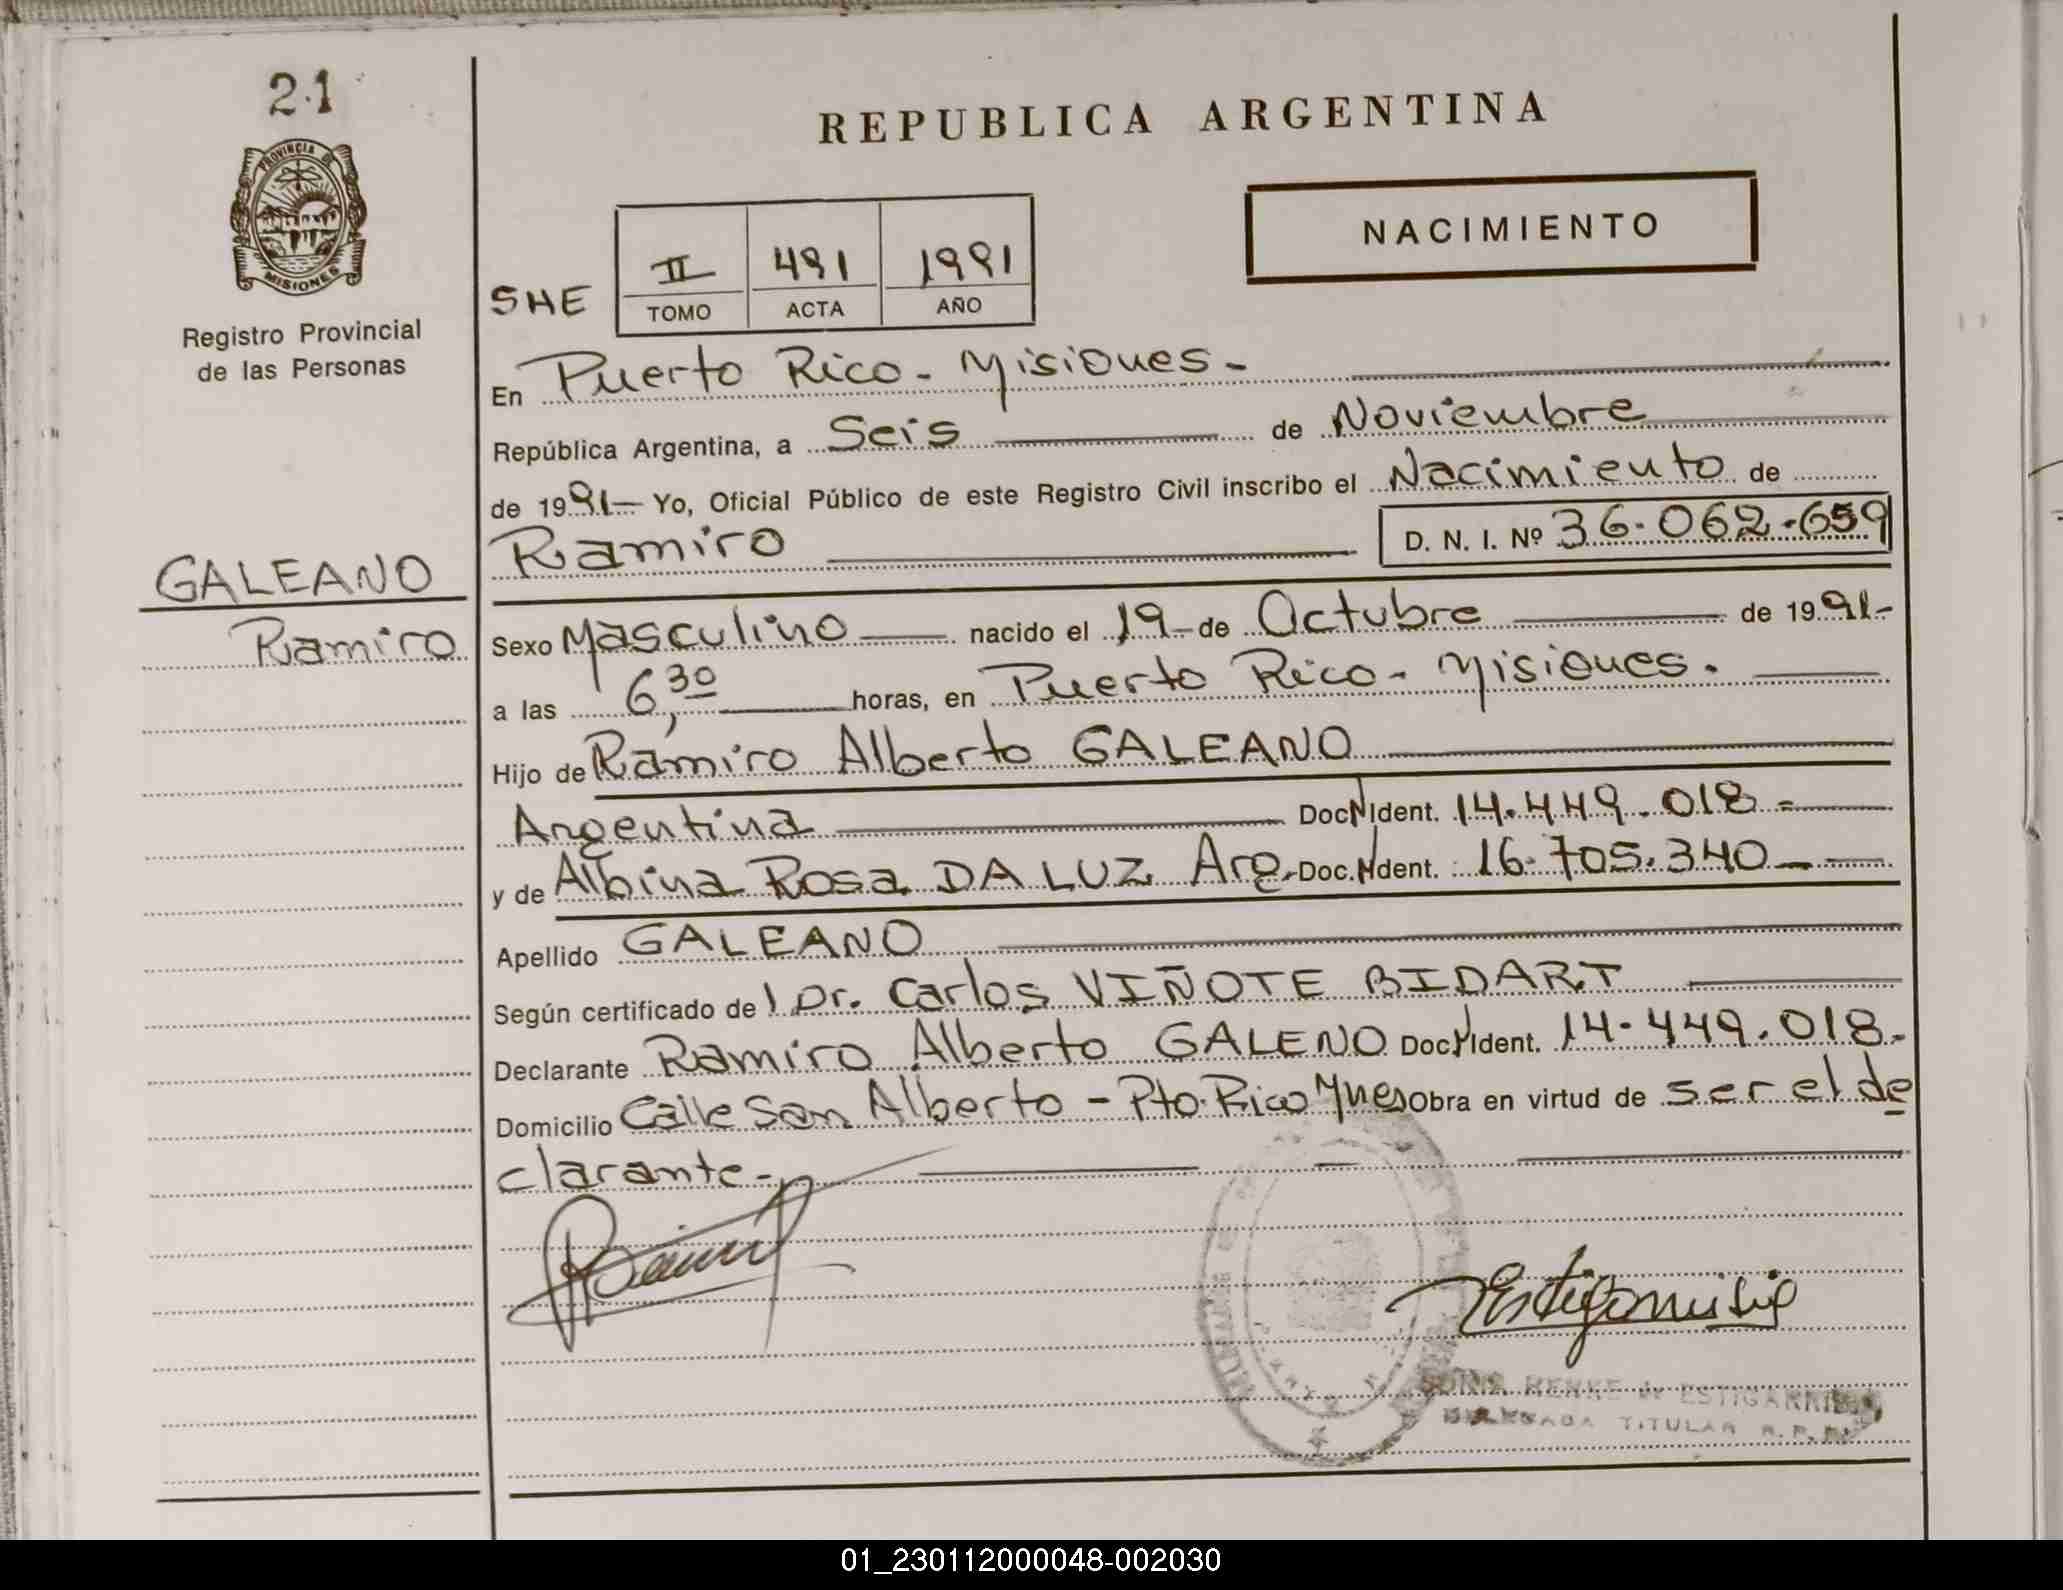 21
PROVINCIA DE
MISIONES
Registro Provincial
de las Personas
GALEANO
Ramiro
REPUBLICA ARGENTINA
NACIMIENTO
SHE
II 491 1991
TOMO ACTA AÑO
En Puerto Rico - Misiones -
República Argentina, a Seis de Noviembre
de 1991 - Yo, Oficial Público de este Registro Civil inscribo el Nacimiento de
Ramiro D. N. I. Nº 36.062.659
Sexo Masculino nacido el 19 de Octubre de 1991-
a las 6,30 horas, en Puerto Rico - Misiones.
Hijo de Ramiro Alberto GALEANO
Argentina Doc. N Ident. 14.449.018 -
y de Albina Rosa DA LUZ Arg. Doc. N Ident. 16.705.340 -
Apellido GALEANO
Según certificado de l Dr. Carlos VIÑOTE BIDART
Declarante Ramiro Alberto GALENO Doc. N Ident. 14.449.018.-
Domicilio Calle San Alberto - Pto. Rico Mnes Obra en virtud de ser el de
clarante -
HENKE de ESTIGARRIBIA
DELEGADA TITULAR R. P. P.
01_230112000048-002030